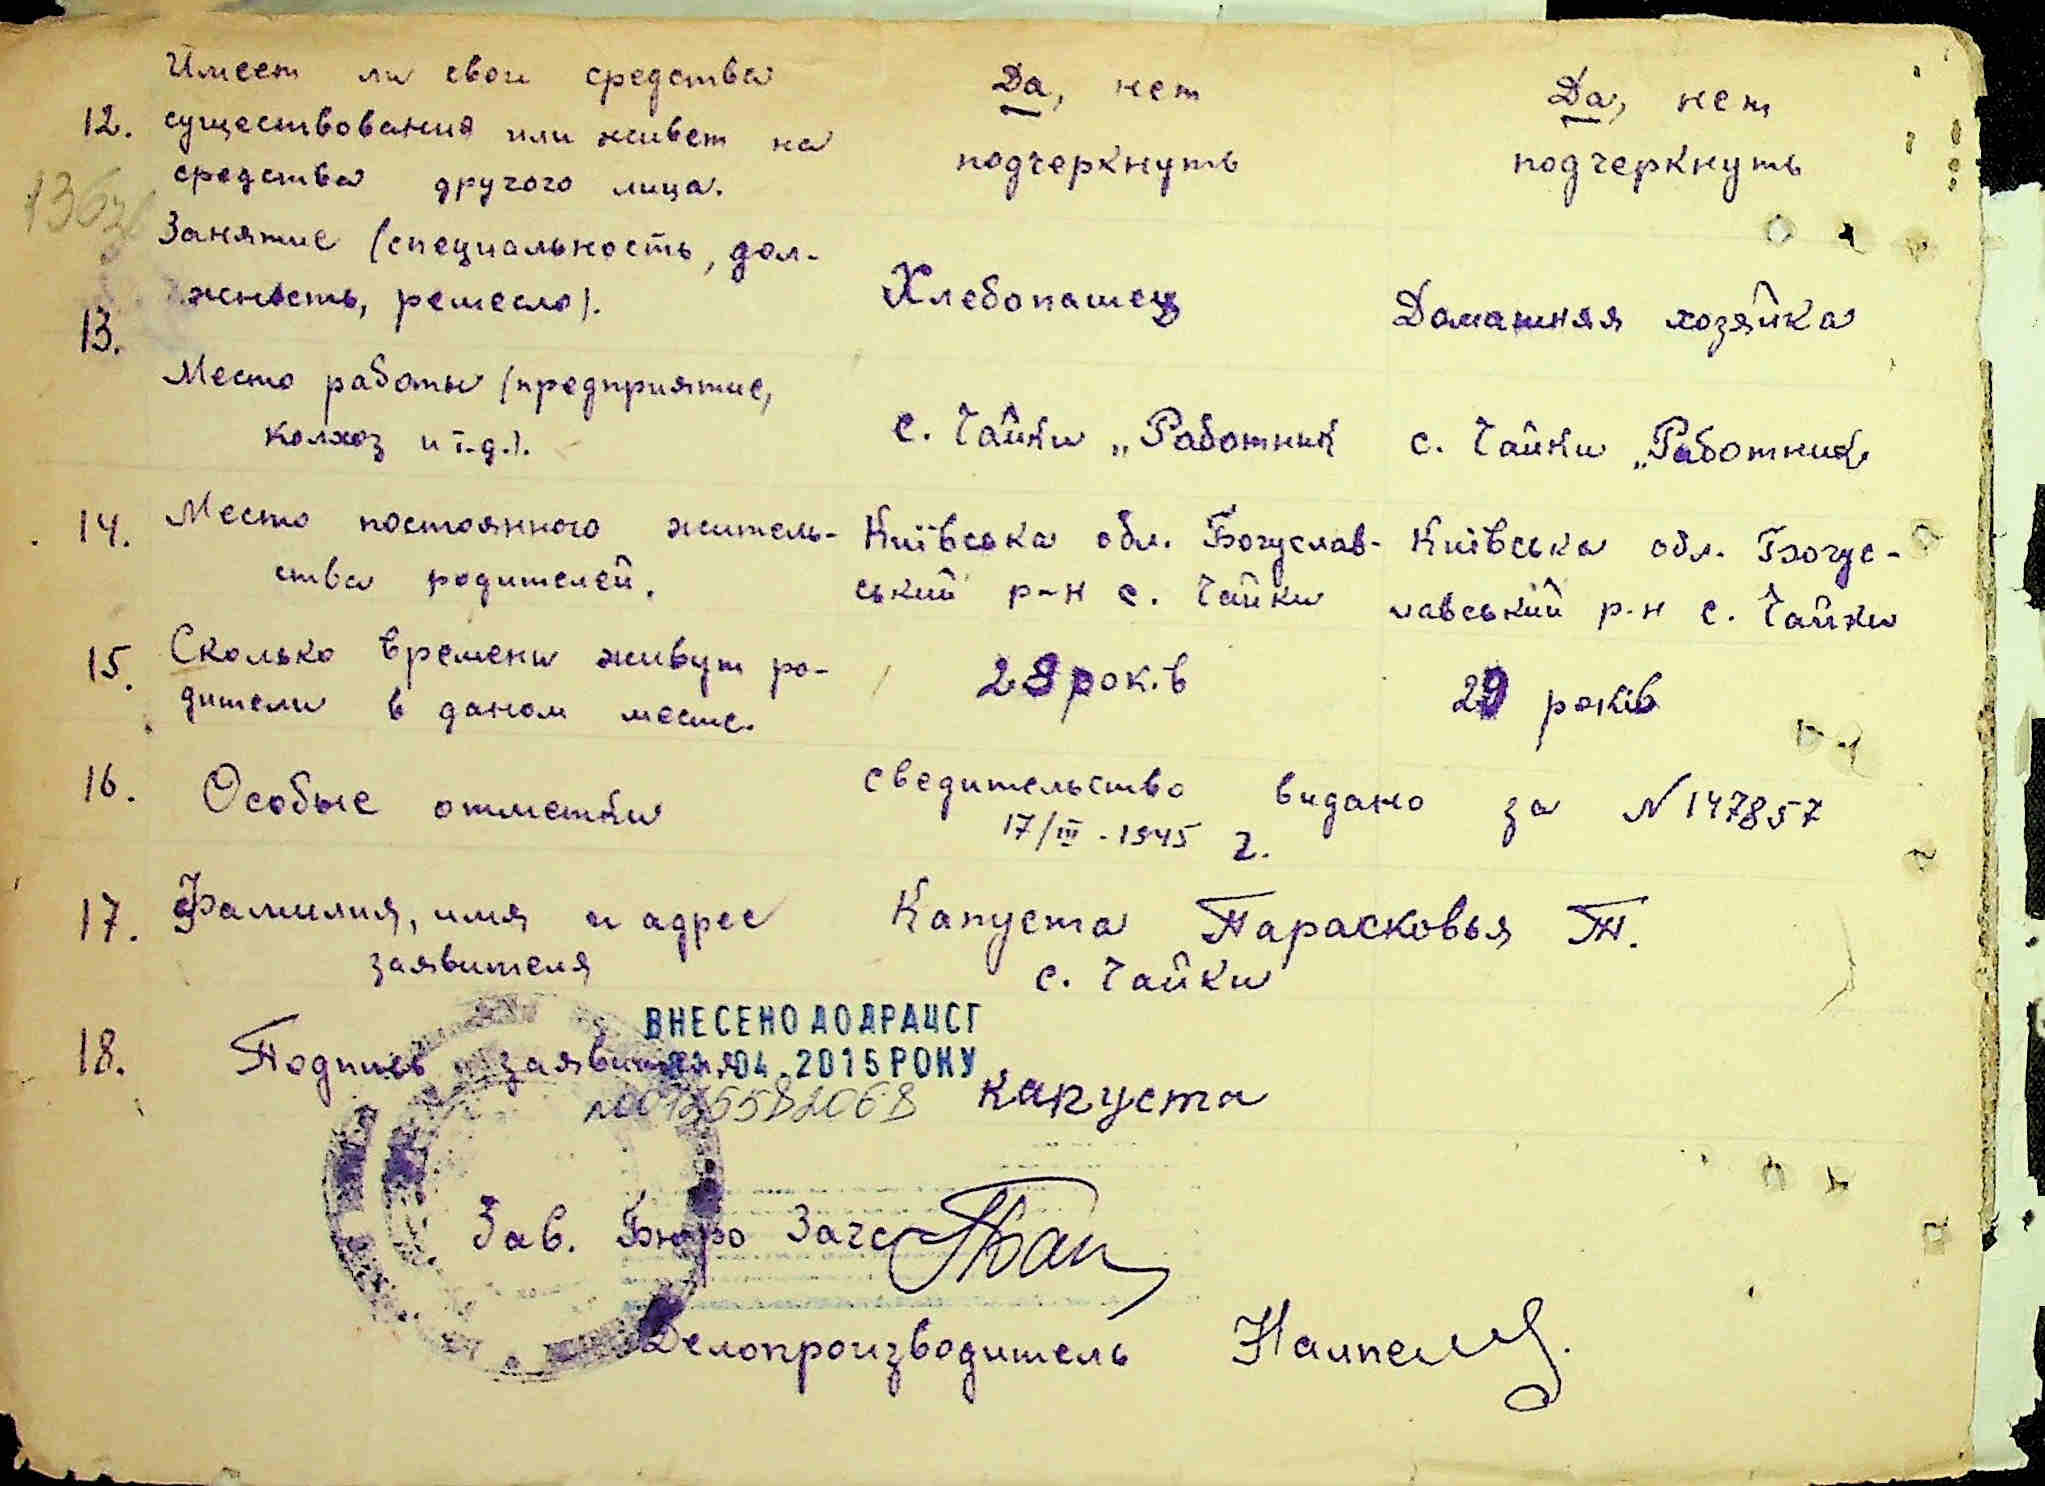 Имеет ли свои средства
12. существования или живет на
средства другого лица.
Да, нет
подчеркнуть
Да, нет
подчеркнуть
Занятие (специальность, дол-
жность, ремесло).
13.
Хлебопашец
Домашняя хозяйка
Место работы (предприятие,
колхоз и т.д.).
с. Чайки „Работник
с. Чайки „Работник
14. Место постоянного житель-
ства родителей.
Київська обл. Богуслав-
ський р-н с. Чайки
Київська обл. Богус-
лавський р-н с. Чайки
15. Сколько времени живут ро-
дители в даном месте.
28 років
29 років
16. Особые отметки
сведительство видано за N 147857
17/III - 1945 г.
17. Фамилия, имя и адрес
заявителя
Капуста Парасковья Т.
с. Чайки
ВНЕСЕНО ДО ДРАЦСГ
04.2015 РОКУ
18. Подпись заявителя
капуста
Зав. Бюро Загс
Делопроизводитель